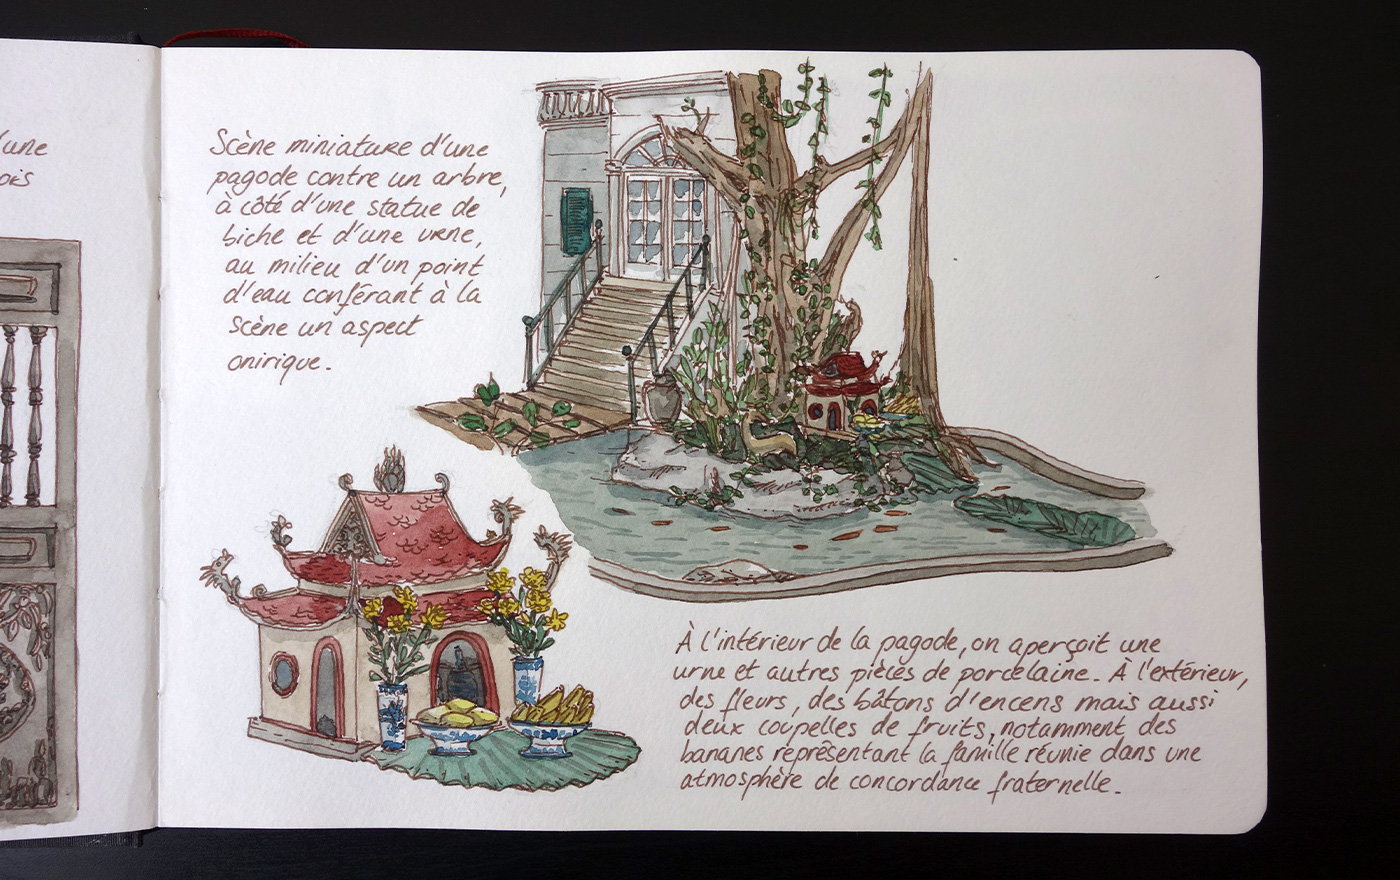 'une
ois
Scène miniature d'une
pagode contre un arbre,
à côté d'une statue de
biche et d'une urne,
au milieu d'un point
d'eau conférant à la
scène un aspect
onirique.
À l'intérieur de la pagode, on aperçoit une
urne et autres pièces de porcelaine. À l'extérieur,
des fleurs, des bâtons d'encens mais aussi
deux coupelles de fruits, notamment des
bananes représentant la famille réunie dans une
atmosphère de concordance fraternelle.